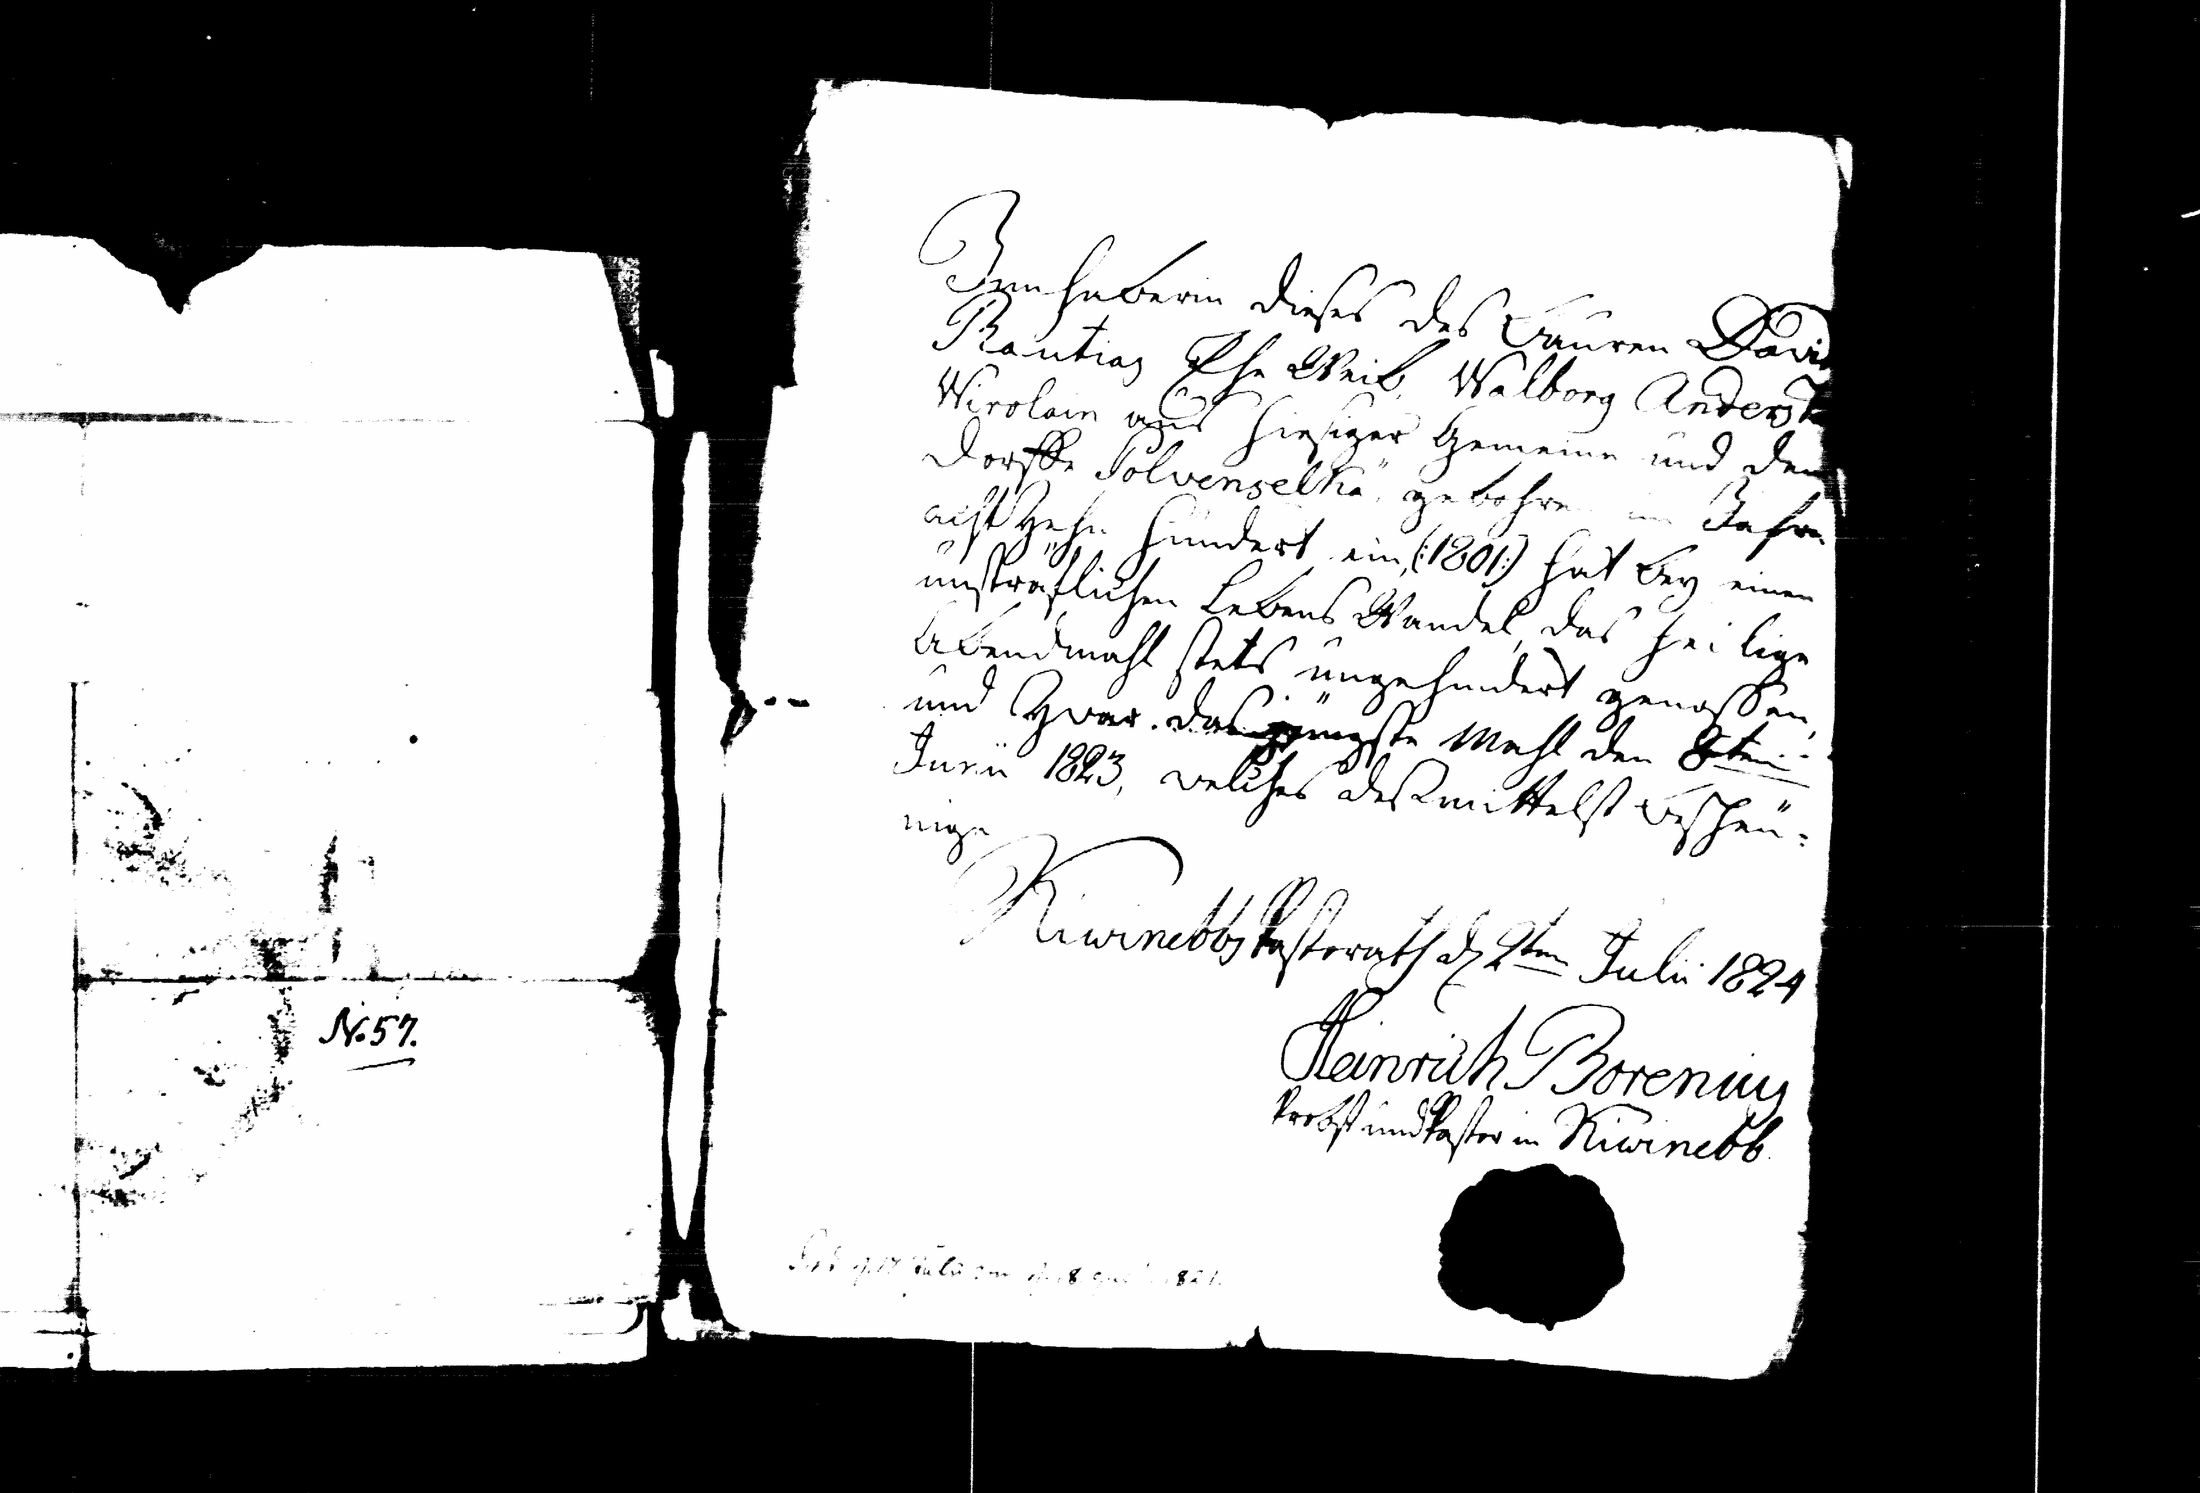 No. 57.
Innhaberin dieses des Bauren David
Rautias Ehe Weib, Walborg Anders
Wirolain aus hiesiger Gemeine und dem
Dorffe Polvenselkä, gebohren im Jahre
acht Zehn Hundert ein, (:1801:) hat bey einen
unsträflichen Lebens Wandel, das heilige
Abendmahl stets ungehindert genossen,
und Zwar das jüngste Mahl den 8ten
Junii 1823, welches desmittelst beschei-
nige
Kiwinebbs Pastorath d 2ten Julii 1824
Heinrich Borenius
Probst und Pastor in Kiwinebb.